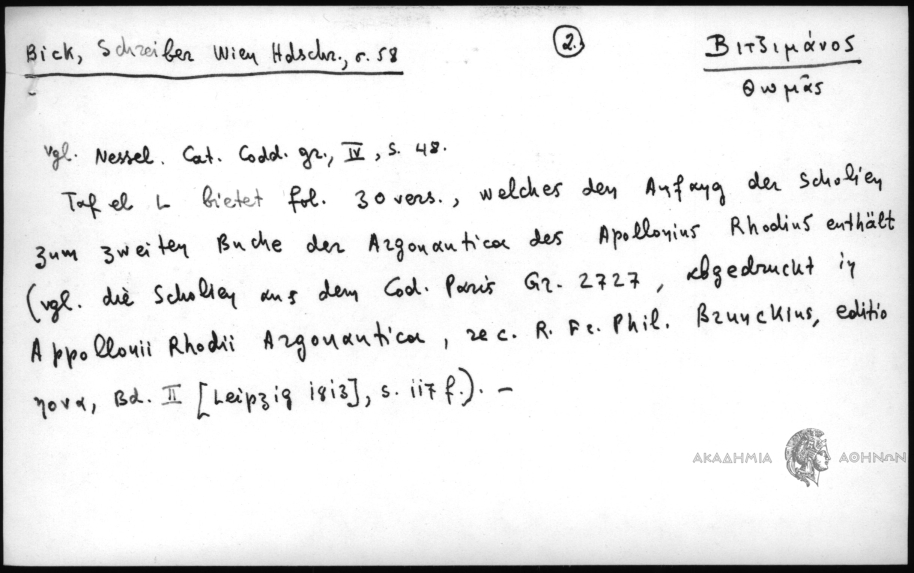 Bick, Schreiber Wien Hdschr., σ. 58
2.
Βιτζιμάνος
Θωμᾶς
vgl. Nessel. Cat. Codd. gr., IV, S. 48.
Tafel L bietet fol. 30 vers., welches den Anfang der Scholien
zum zweiten Buche der Argonautica des Apollonius Rhodius enthält
(vgl. die Scholien aus dem Cod. Paris Gr. 2727, abgedruckt in
Appollonii Rhodii Argonautica, rec. R. Fr. Phil. Brunckius, editio
nova, Bd. II [Leipzig 1813], S. 117 f.). –
ΑΚΑΔΗΜΙΑ ΑΘΗΝΩΝ